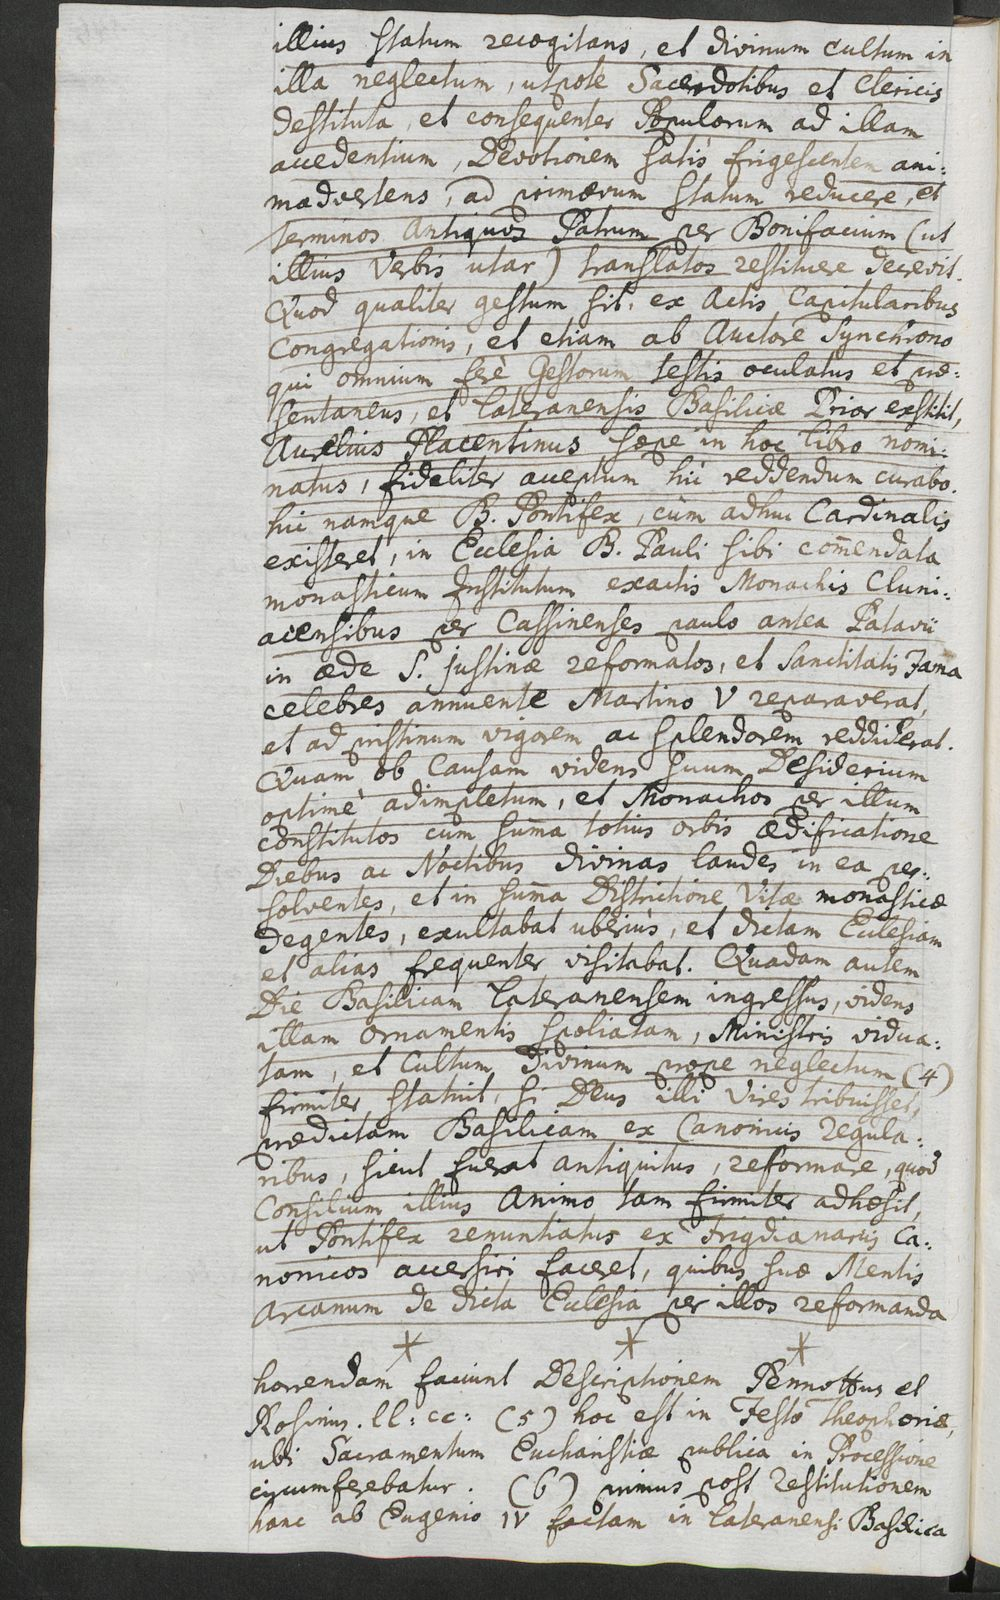 illius statum recogitans, et divinum cultum in
illa neglectum, utpote Sacerdotibus et Clericis
destituta, et consequenter Populorum ad illam
accedentium, Devotionem satis frigescentem ani:
madvertens, ad primævum statum reducere, et
terminos Antiquos Patrum per Bonifacium (ut
illius Verbis utar) translatos restituere decrevit.
Quod qualiter gestum sit, ex Actis Capitularibus
Congregationis, et etiam ab Auctore Synchrono
qui omnium ferè Gestorum testis oculatus et præ:
sentaneus, et Lateranensis Basilicæ Prior exstitit,
Aurelius Placentinus sæpe in hoc libro nomi:
natus, fideliter acceptum hic reddendum curabo.
hic namque B. Pontifex, cùm adhuc Cardinalis
existeret, in Ecclesia B. Pauli sibi com̄endata
monasticum Institutum exactis Monachis Cluni:
acensibus per Cassinenses paulo antea Patavii
in æde S. Justinæ reformatos, et Sanctitatis Fama
celebres annuente Martino V reparaverat,
et ad pristinum vigorem ac splendorem reddiderat.
Quam ob Causam videns suum Desiderium
optimè adimpletum, et Monachos per illum
constitutos cum sum̄a totius orbis ædificatione
Diebus ac Noctibus divinas laudes in ea per:
solventes, et in sum̄a Districtione Vitæ monasticæ
degentes, exultabat uberiùs, et dictam Ecclesiam
et alias frequenter visitabat. Quadam autem
Die Basilicam Lateranensem ingressus, videns
illam Ornamentis spoliatam, Ministris vidua:
tam, et Cultum Divinum prope neglectum (4)
firmiter statuit, si Deus illi Vires tribuisset,
prædictam Basilicam ex Canonicis regula:
ribus, sicut fuerat antiquitus, reformare, quod
Consilium illius Animo tam firmiter adhæsit,
ut Pontifex renuntiatus ex Frigdianariis Ca:
nonicos accersiri faceret, quibus suæ Mentis
Arcanum de dicta Ecclesia per illos reformanda
horrendam faciunt Descriptionem Pennottus et
Rosinus. ll: cc: (5) hoc est in Festo Theophoriæ,
ubi Sacramentum Eucharistiæ publica in Processione
circumferebatur. (6) primus post restitutionem
hanc ab Eugenio IV factam in Lateranensi Basilica